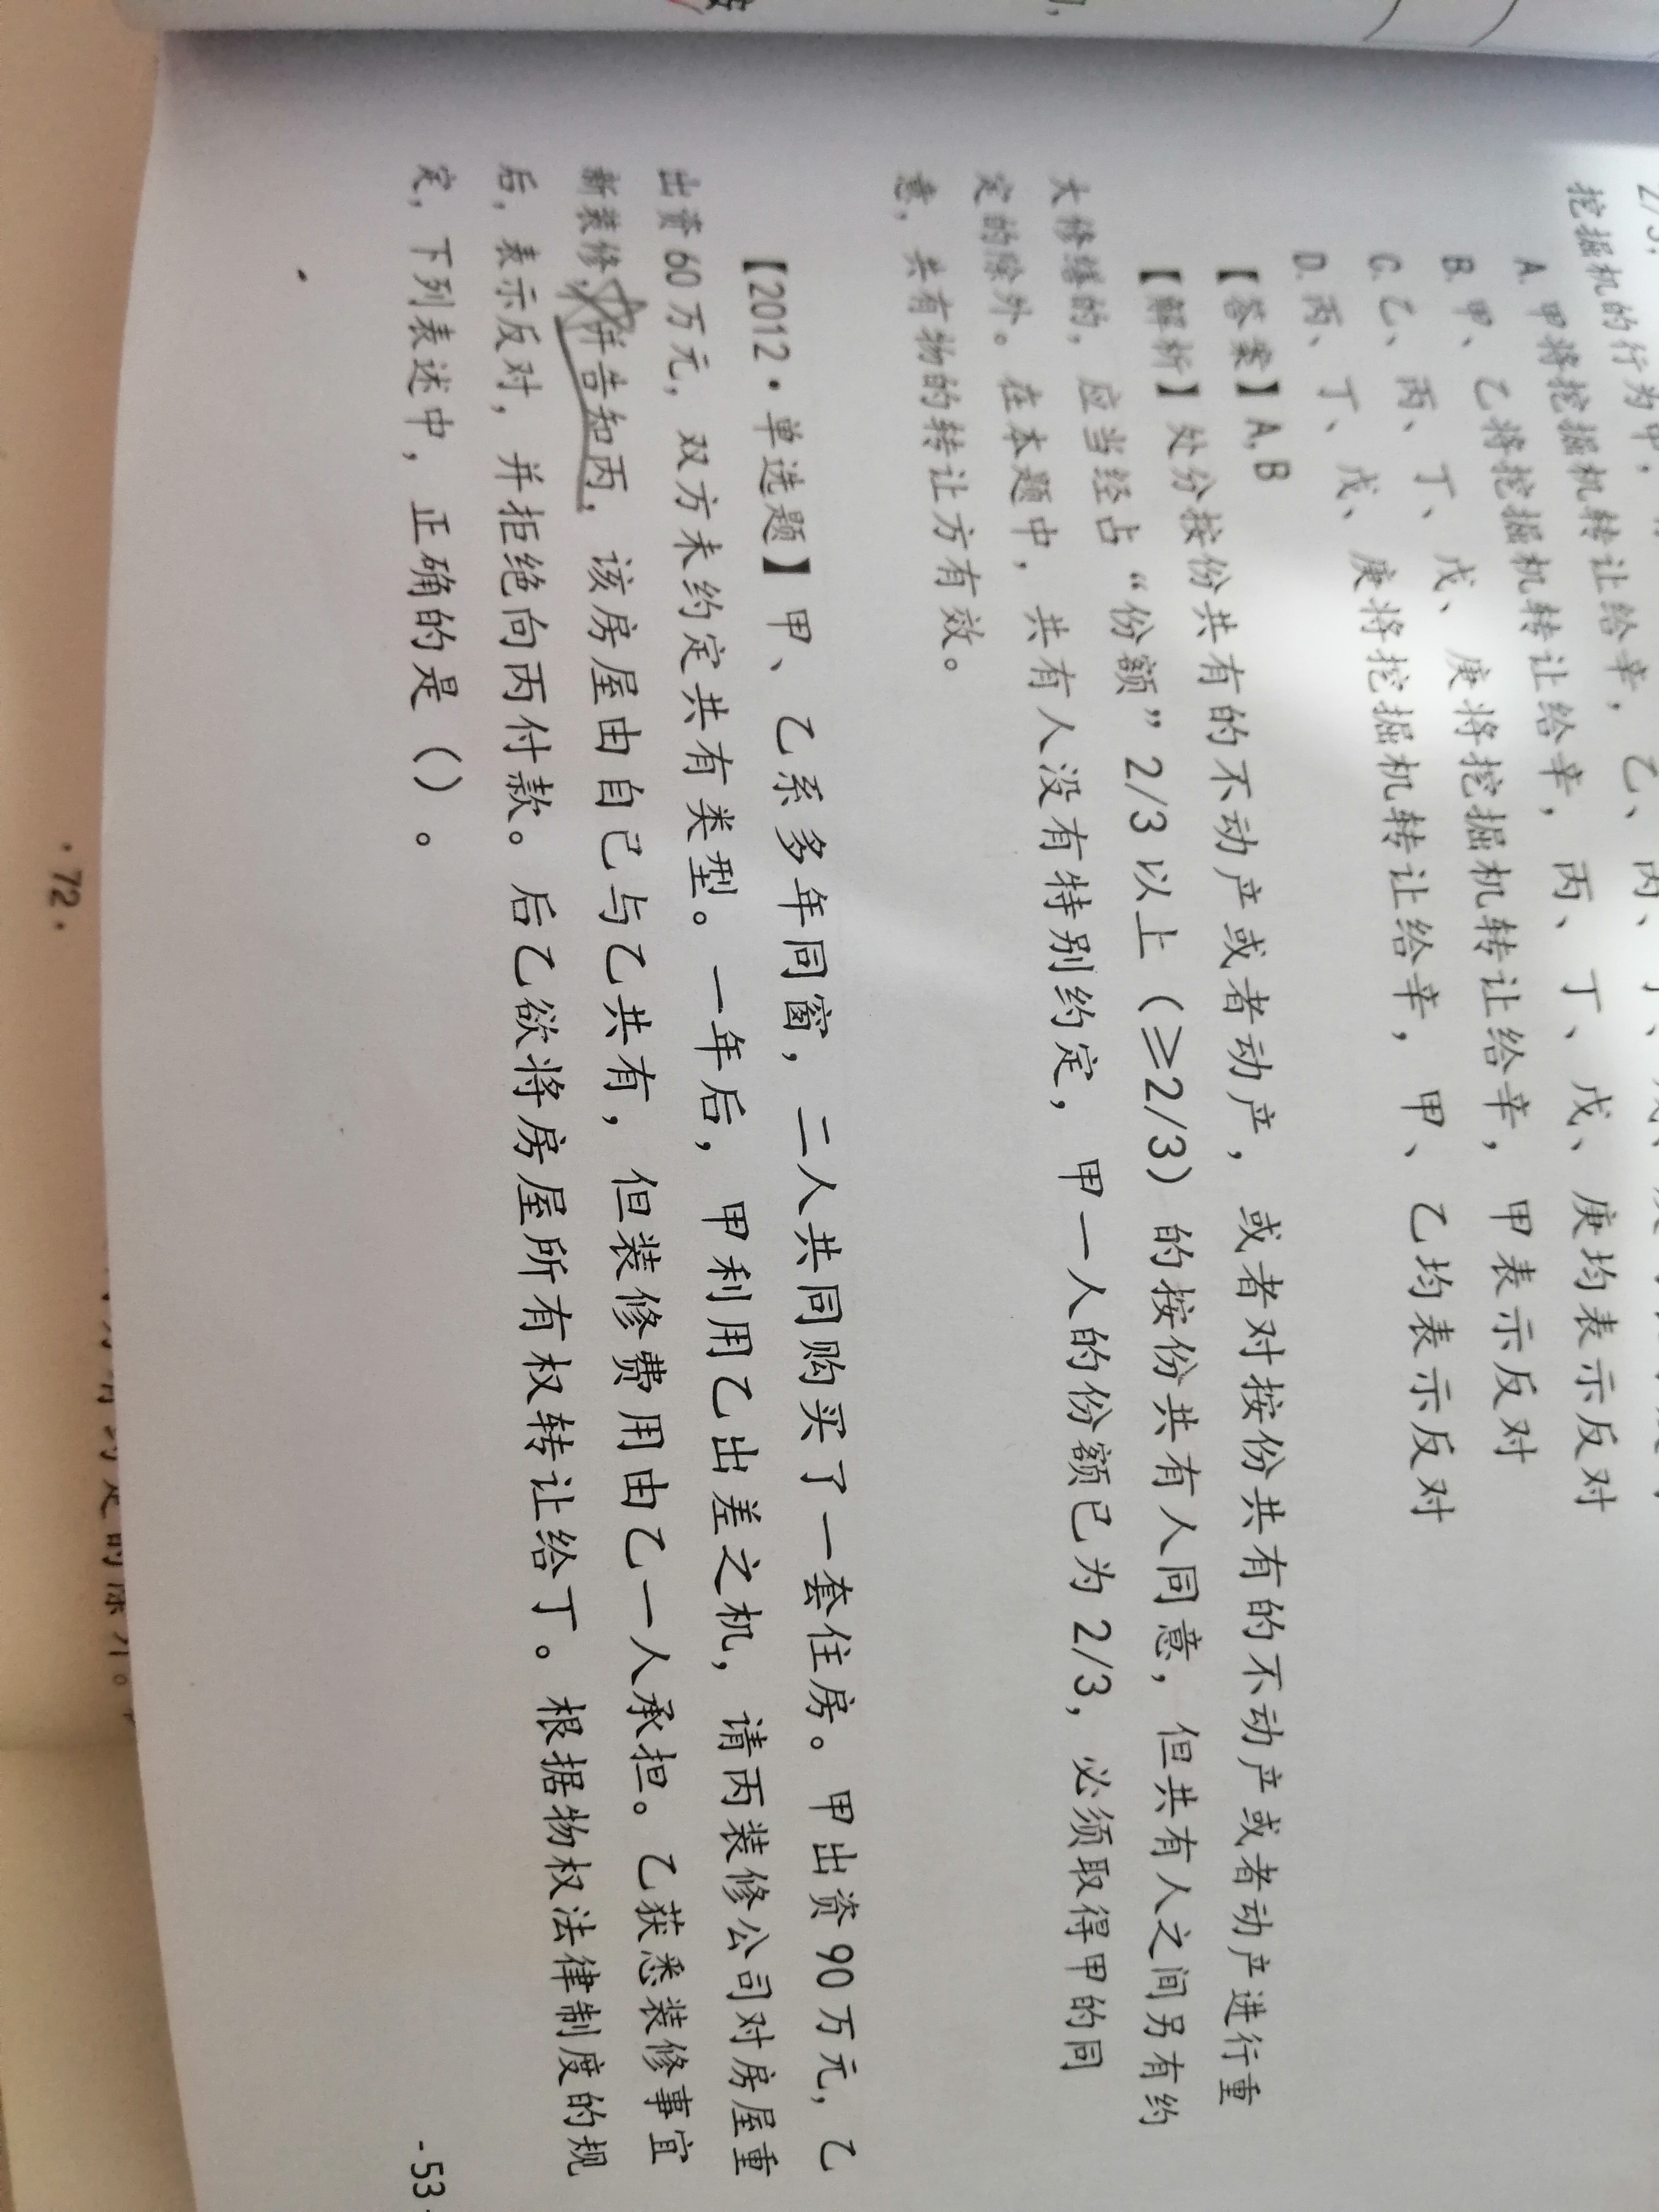 挖掘机的行为中,
A. 甲将挖掘机转让给辛, 乙、丙、丁、戊、庚均表示反对
B. 甲、乙将挖掘机转让给辛, 丙、丁、戊、庚均表示反对
C. 乙、丙、丁、戊、庚将挖掘机转让给辛, 甲表示反对
D. 丙、丁、戊、庚将挖掘机转让给辛, 甲、乙均表示反对
【答案】A, B
【解析】处分按份共有的不动产或者动产, 或者对按份共有的不动产或者动产进行重
大修缮的, 应当经占“份额”2/3以上(≥2/3)的按份共有人同意, 但共有人之间另有约
定的除外。在本题中, 共有人没有特别约定, 甲一人的份额已为2/3, 必须取得甲的同
意, 共有物的转让方有效。
【2012·单选题】甲、乙系多年同窗, 二人共同购买了一套住房。甲出资90万元, 乙
出资60万元, 双方未约定共有类型。一年后, 甲利用乙出差之机, 请丙装修公司对房屋重
新装修, 并告知丙, 该房屋由自己与乙共有, 但装修费用由乙一人承担。乙获悉装修事宜
后, 表示反对, 并拒绝向丙付款。后乙欲将房屋所有权转让给丁。根据物权法律制度的规
定, 下列表述中, 正确的是()。
-53-
·72·